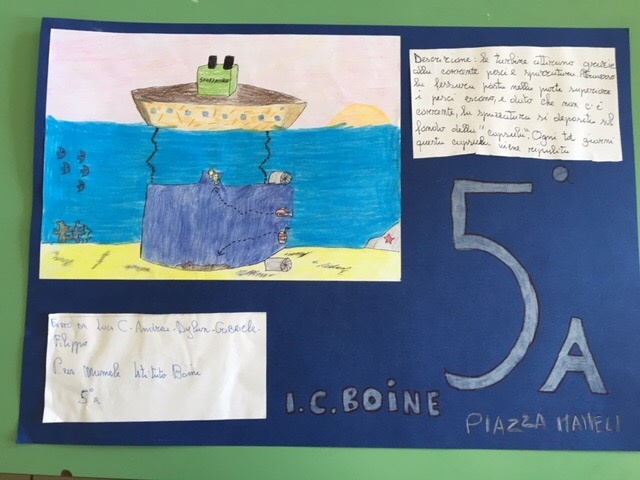 Descrizione: le turbine attirano grazie
alla corrente pesci e spazzatura. Attraverso
la fessura posta nella parte superiore
i pesci escono, e dato che non c'è
corrente, la spazzatura si deposita sul
fondo della "capsula". Ogni tot giorni
questa capsula viene ripulita
5°A
Luca C. - Andrea - Dylan - Gabriele -
Filippo
Istituto Boine
5°A
I.C. BOINE
PIAZZA MAMELI